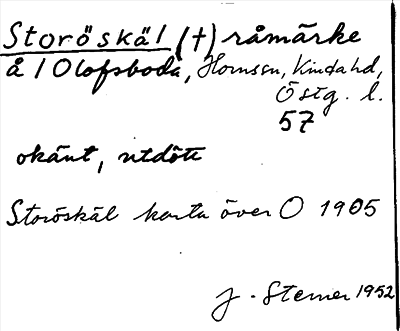 Storöskäl (†) råmärke
å / Olofsboda, Hornssn, Kinda hd,
Östg. l.
57
okänt, utdött
Storöskäl karta över O 1905
J. Sterner 1952